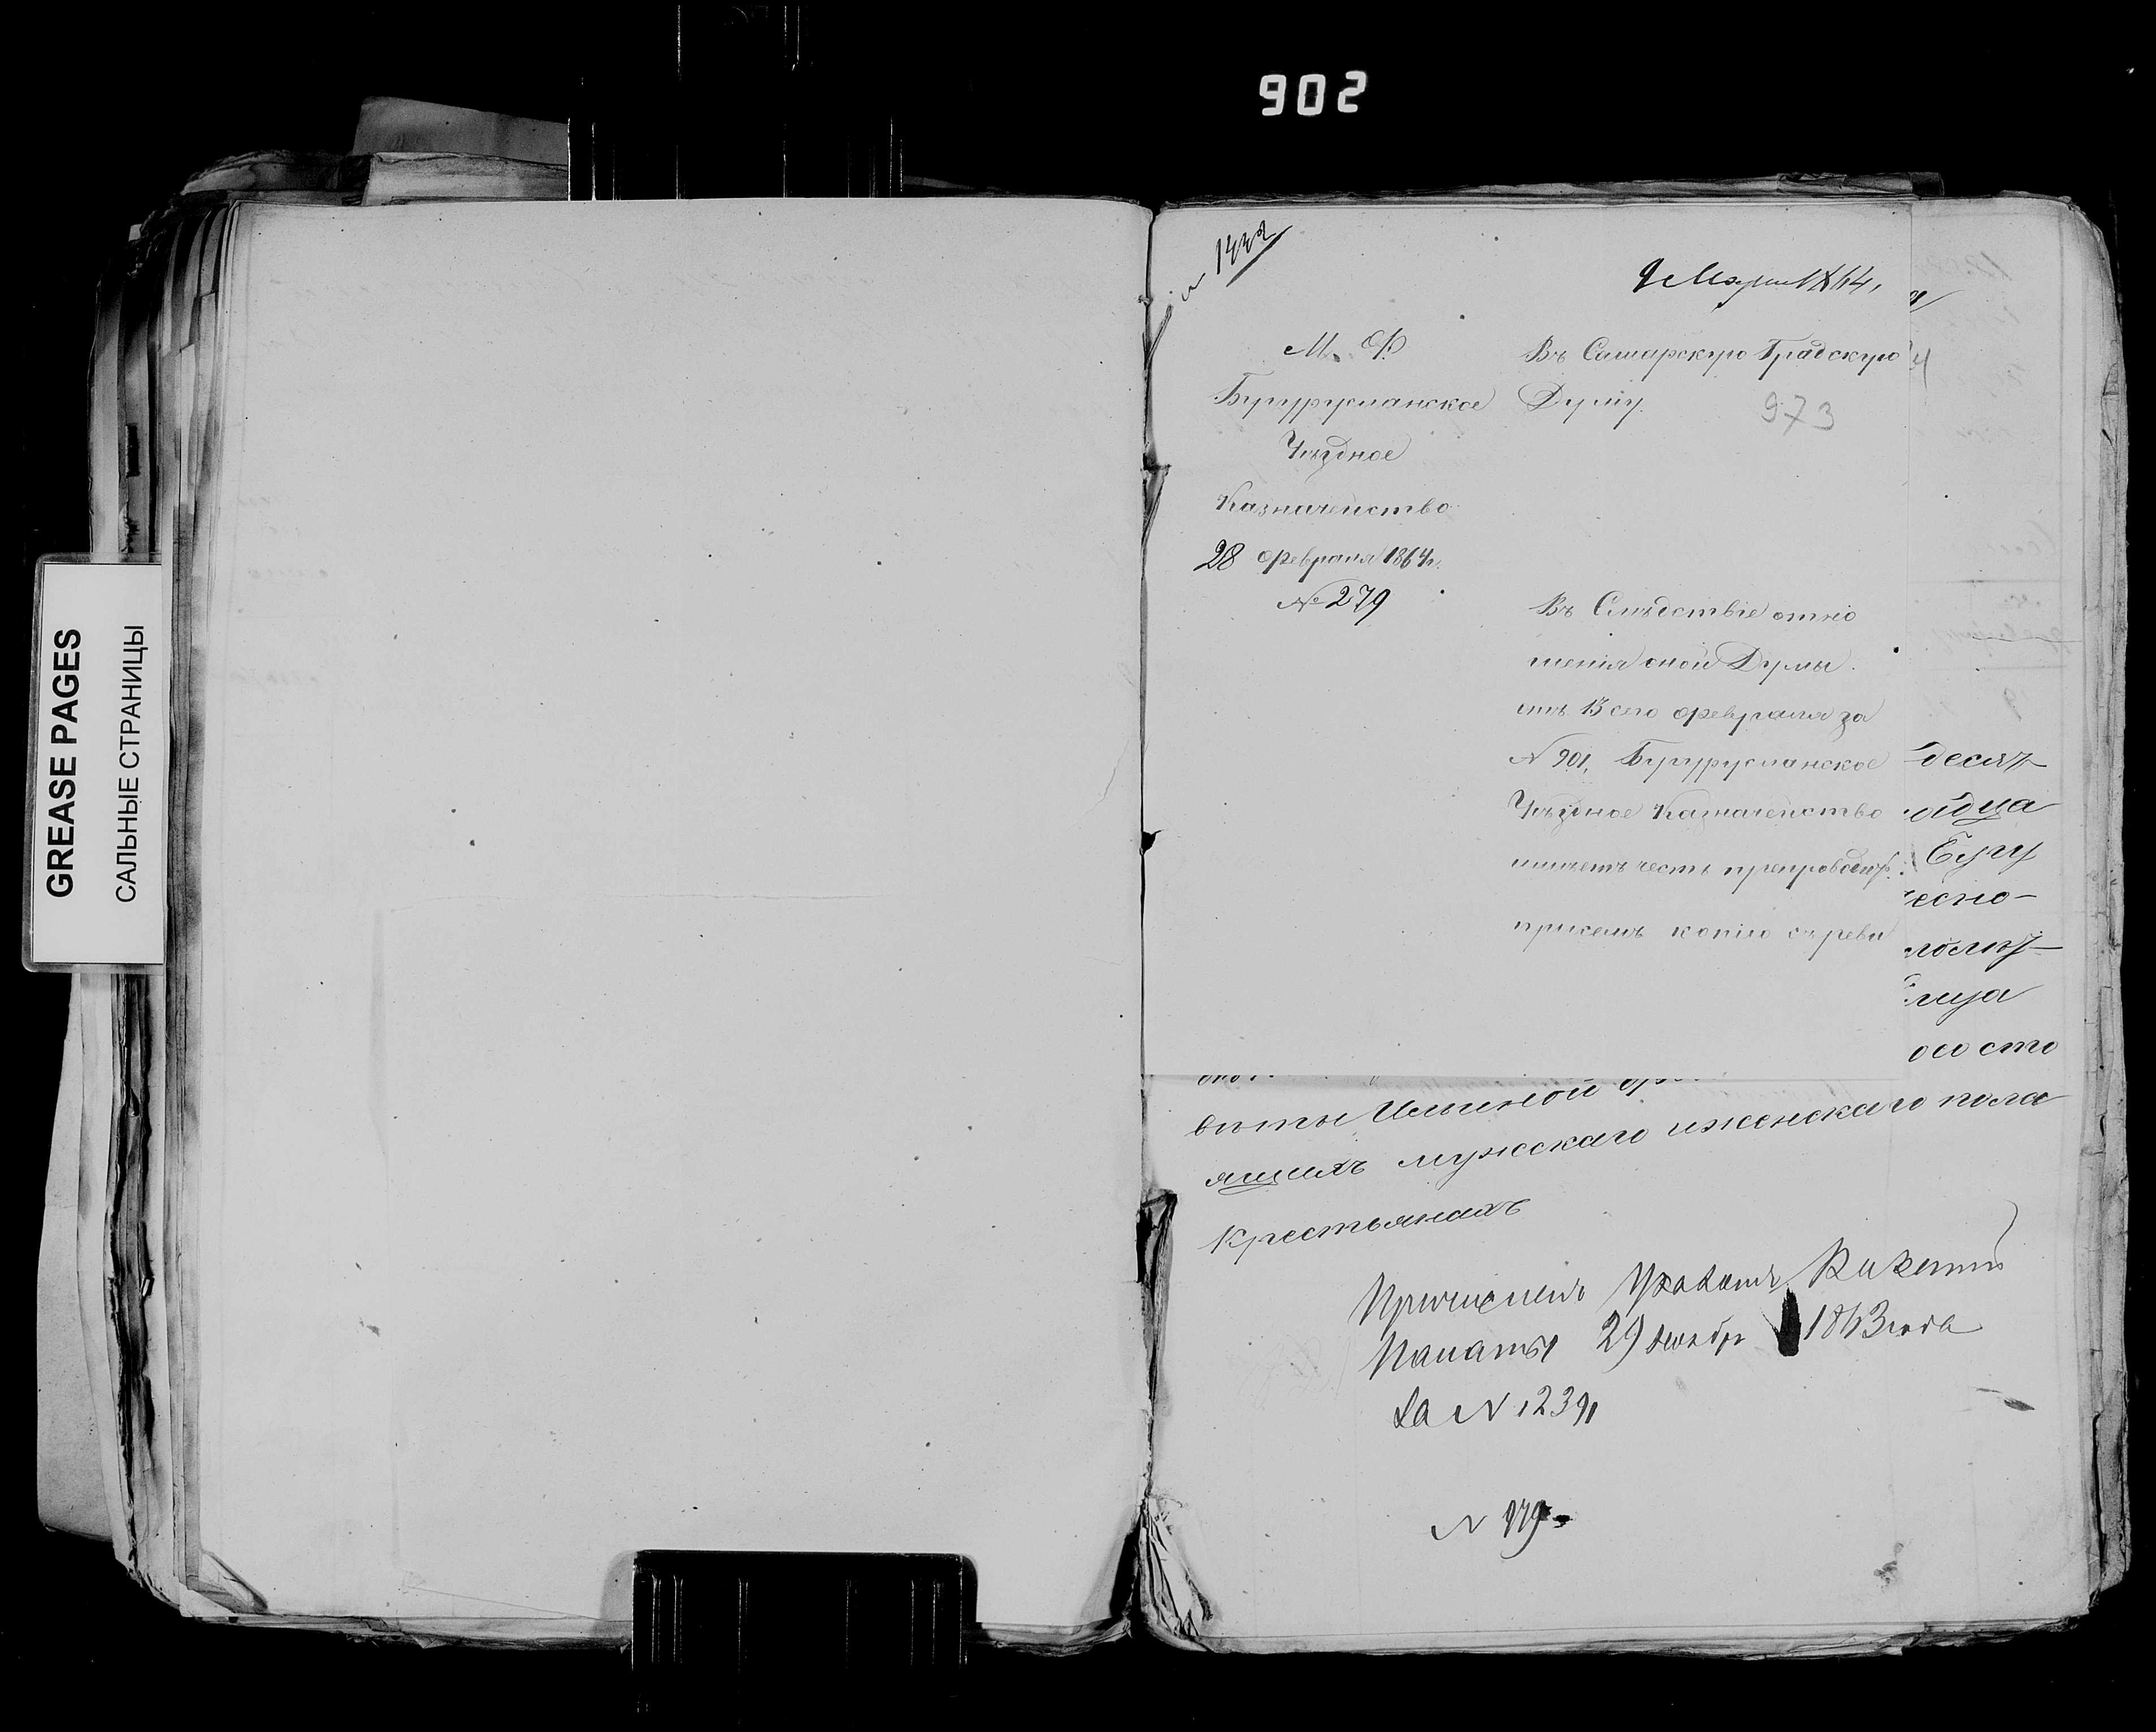 902
GREASE PAGES
САЛЬНЫЕ СТРАНИЦЫ
9 Марта 1864,
М. Ф.
Бугурусланское
Уѣздное
Казначейство
28 февраля 1864 г.
№ 279
Въ Самарскую Градскую
Думу.
973
Въ Слѣдствіе отно
шенія оной Думы
отъ 13 сего февраля за
N 901, Бугурусланское
Уѣздное Казначейство
имѣетъ честь препровод.
при семъ копію съ реви
десят
Бугу
лица
вѣты Ильиной
ящихъ мужскаго и женскаго пола
Крестьянахъ
Причислена Указомъ Казенной
Палаты 29 декабр 1863 года
За N 12391
N 979